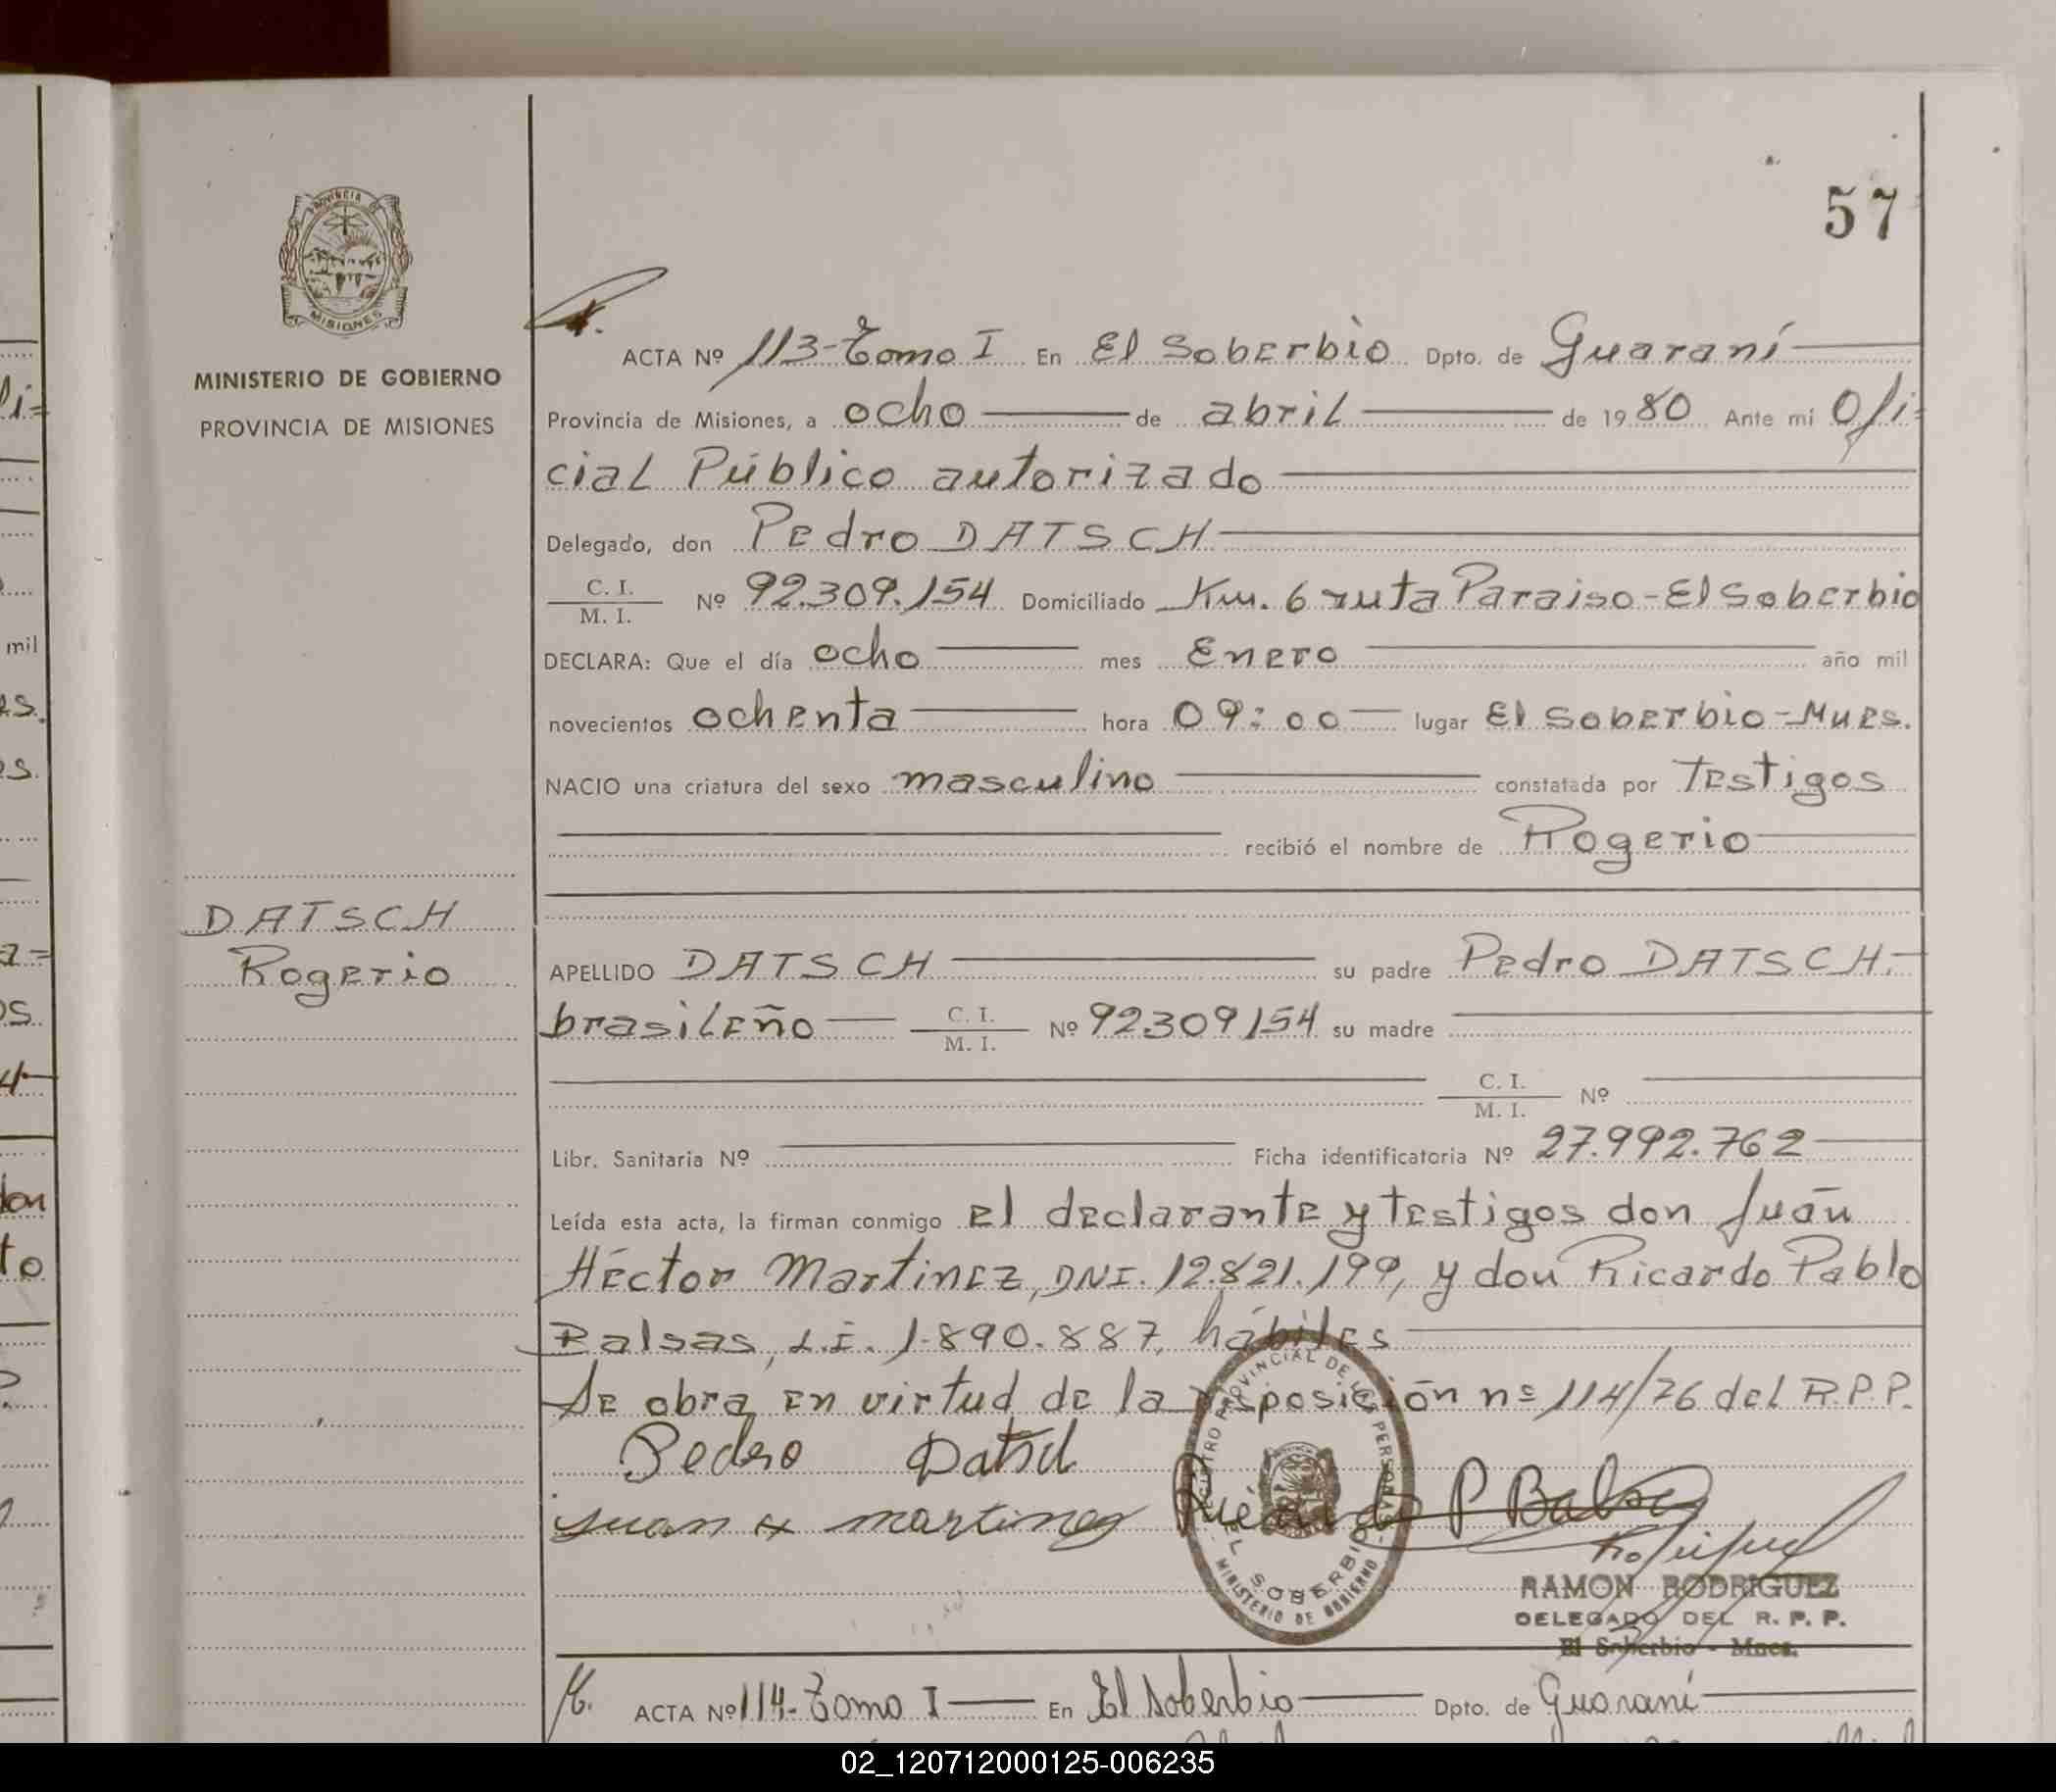 57
PROVINCIA DE
MISIONES
MINISTERIO DE GOBIERNO
PROVINCIA DE MISIONES
ACTA Nº 113-Tomo I En El Soberbio Dpto. de Guaraní
Provincia de Misiones, a ocho de abril de 1980 Ante mí Ofi=
cial Público autorizado
Delegado, don Pedro DATSCH
C. I.
M. I. Nº 92.309.154 Domiciliado Km. 6 ruta Paraiso-El Soberbio
DECLARA: Que el día ocho mes Enero año mil
novecientos ochenta hora 09:00 lugar El Soberbio-Mnes.
NACIO una criatura del sexo masculino constatada por Testigos
recibió el nombre de Rogerio
DATSCH
Rogerio
APELLIDO DATSCH su padre Pedro DATSCH.-
brasileño C. I.
M. I. Nº 92309154 su madre
C. I.
M. I. Nº
Libr. Sanitaria Nº Ficha identificatoria Nº 27.992.762
Leída esta acta, la firman conmigo el declarante y testigos don Juan
Héctor Martinez, DNI. 12.821.199, y don Ricardo Pablo
Balsas, L.E. 1.890.887, hábiles
Se obra en virtud de la disposición nº 114/76 del R.P.P.
Pedro Datsch
Juan H Martinez Ricardo P Balsa
REGISTRO PROVINCIAL DE LAS PERSONAS
EL SOBERBIO
MINISTERIO DE GOBIERNO
RAMON RODRIGUEZ
DELEGADO DEL R. P. P.
El Soberbio - Mnes.
ACTA Nº 114-Tomo I En El Soberbio Dpto. de Guaraní
mil
02_120712000125-006235